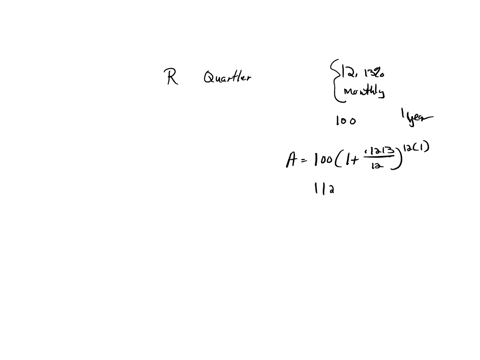 R Quartler
12.13%
monthly
100 1 year
A = 100(1+ .1213/12)^12(1)
112